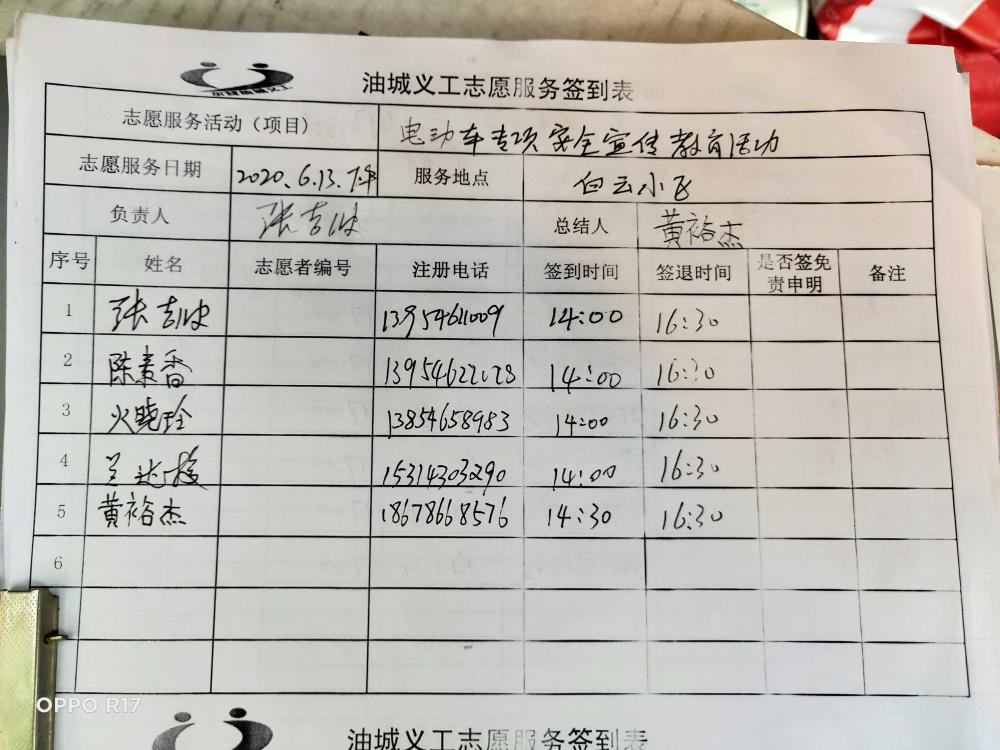 油城义工志愿服务签到表
志愿服务活动（项目） 电动车专项安全宣传教育活动
志愿服务日期 2020.6.13.下午 服务地点 白云小区
负责人 张吉波 总结人 黄裕杰
序号 姓名 志愿者编号 注册电话 签到时间 签退时间 是否签免责申明 备注
1 张吉波 13954611009 14:00 16:30
2 陈素香 14:00 16:30
3 火晓玲 13854658983 14:00 16:30
4 15314303290 14:00 16:30
5 黄裕杰 18678668576 14:30 16:30
6
OPPO R17
油城义工志愿服务签到表